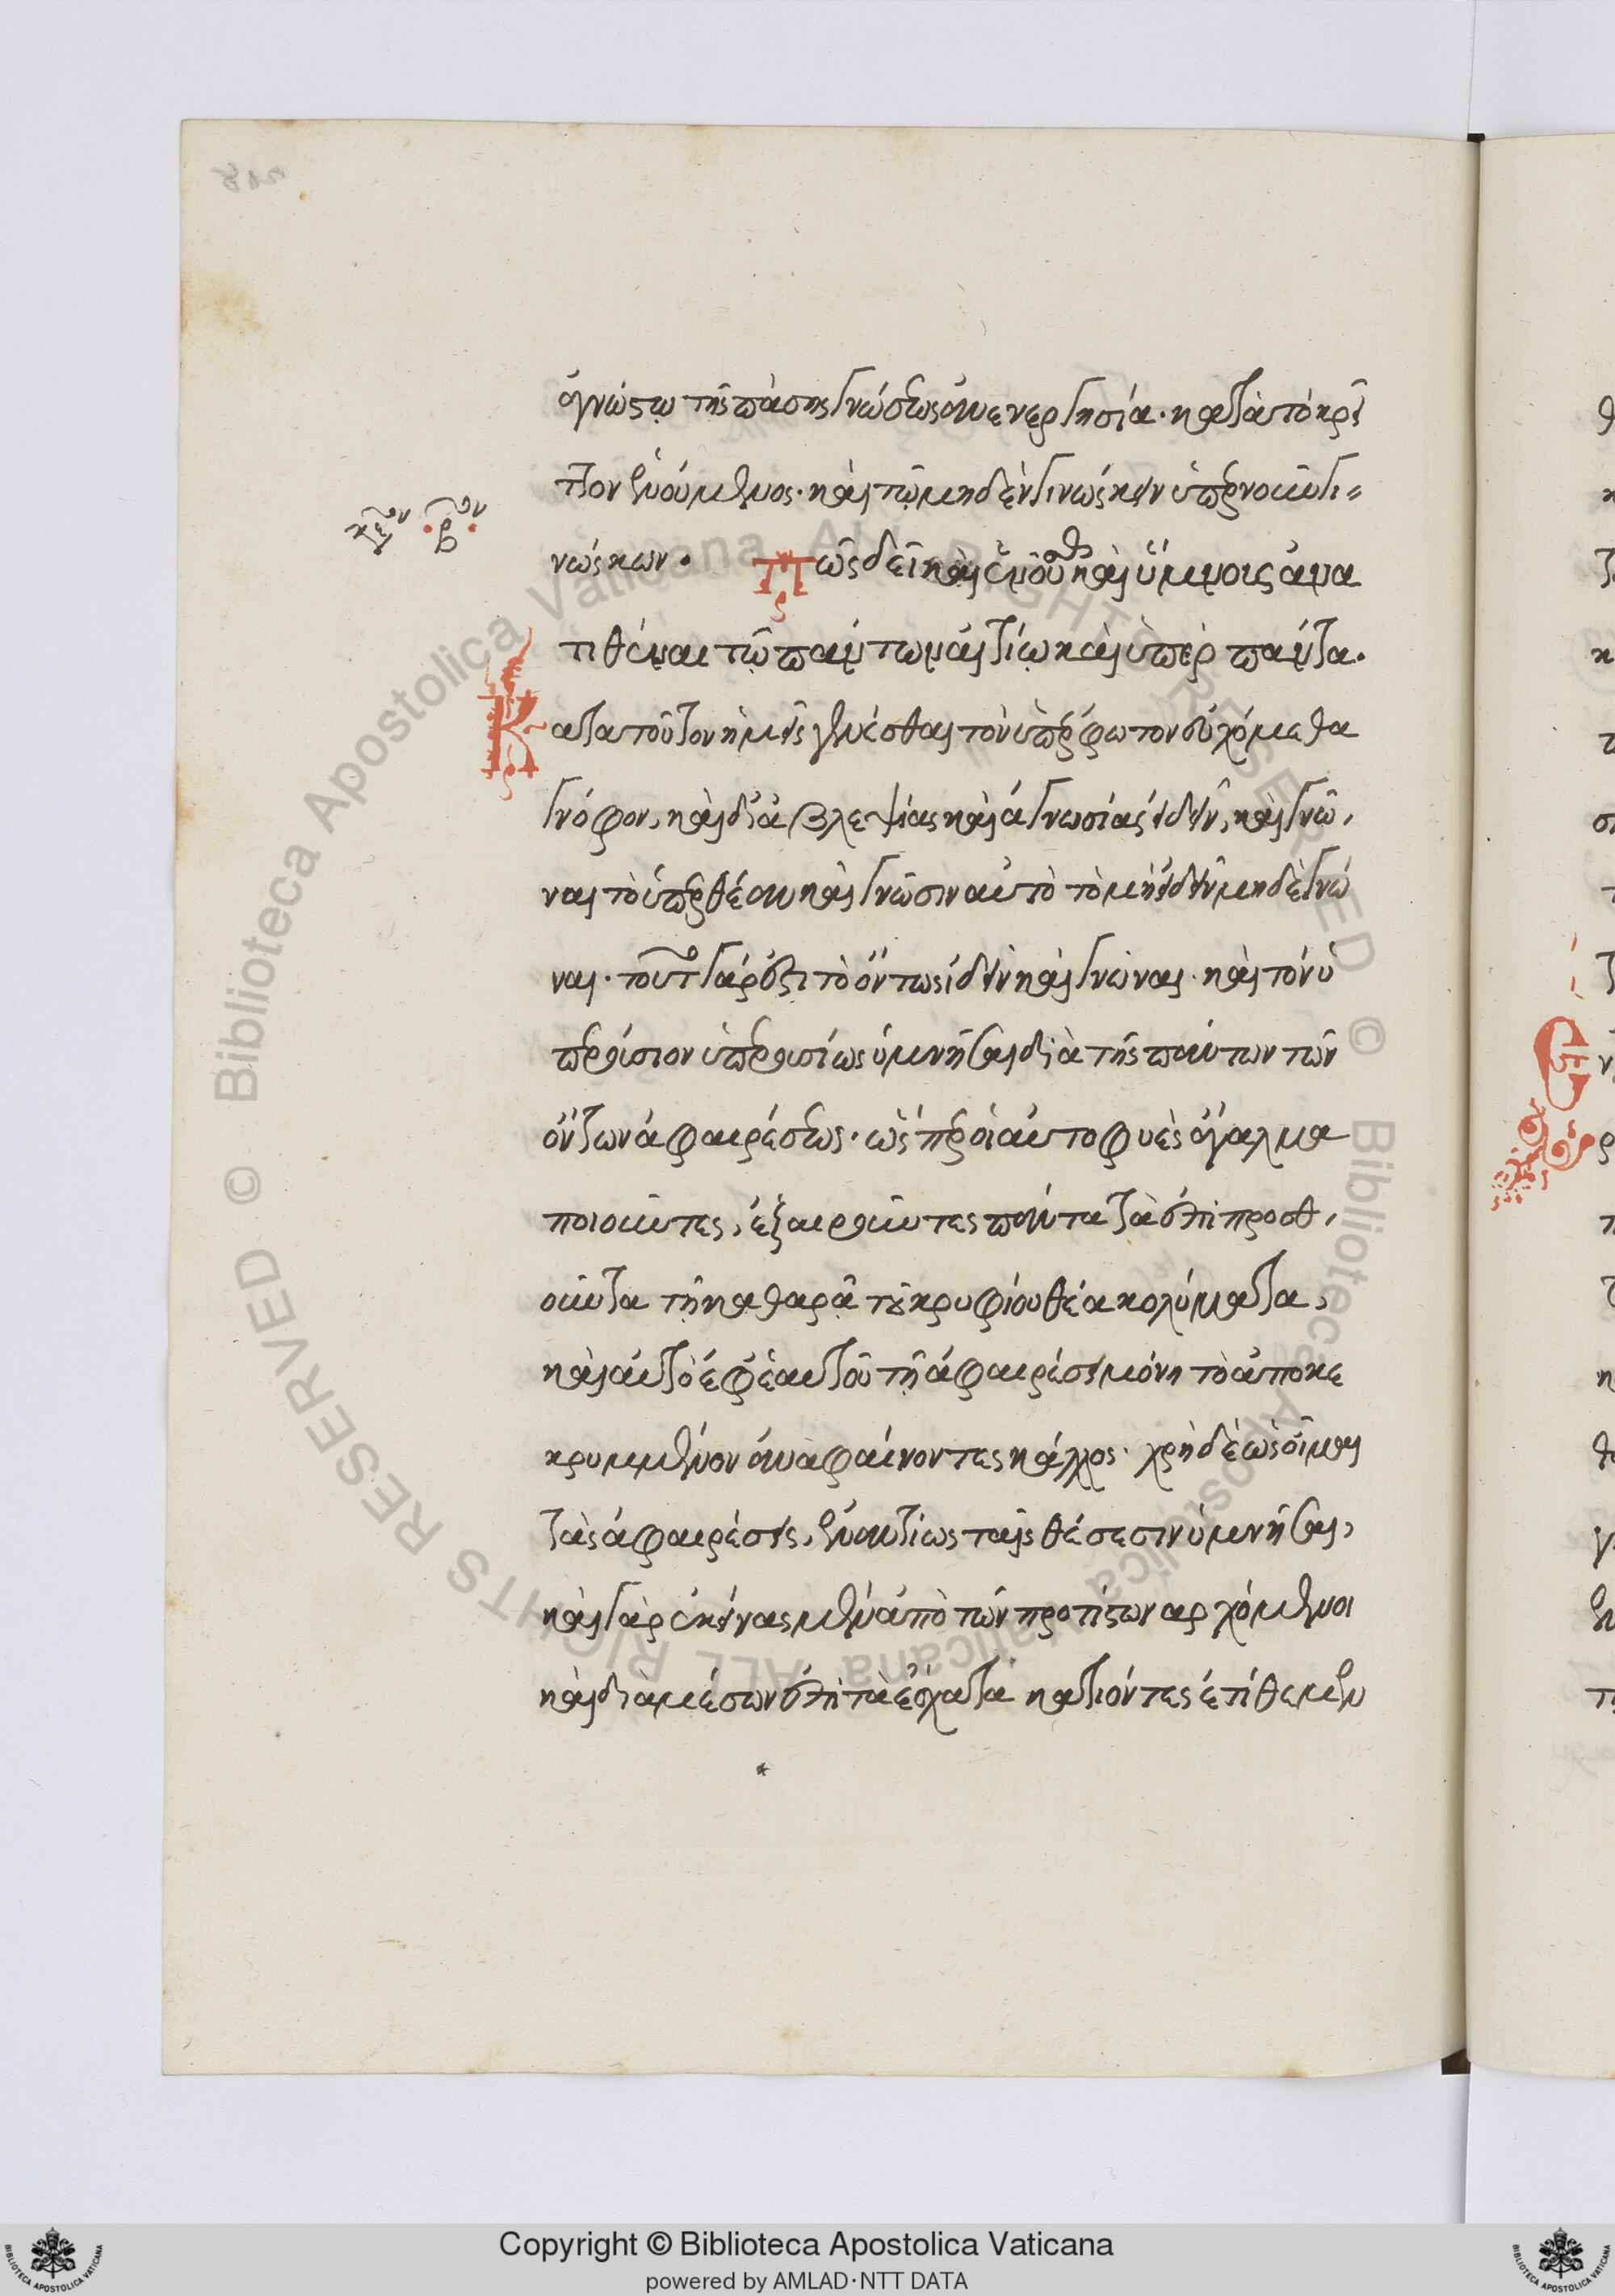 ἀγνώστῳ τῆς πάσης γνώσεως ἀνενεργησίᾳ· κατὰ τὸ κρεῖ
τλον ἑνούμενος· καὶ τῷ μηδὲν γινώσκειν ὑπὲρ νοῦν γι-
νώσκων. Πῶς δεῖ καὶ ἑνοῦσθαι καὶ ὕμνους ἀνα
τιθέναι τῷ πάντων αἰτίῳ καὶ ὑπὲρ πάντα.
Κατὰ τοῦτον ἡμεῖς γενέσθαι τὸν ὑπέρφωτον εὐχόμεθα
γνόφον, καὶ δι' ἀβλεψίας καὶ ἀγνωσίας ἰδεῖν, καὶ γνῶ,
ναι τὸ ὑπὲρ θέαν καὶ γνῶσιν αὐτὸ τὸ μὴ ἰδεῖν μηδὲ γνῶ
ναι. τοῦτο γάρ ἐστι τὸ ὄντως ἰδεῖν καὶ γνῶναι. καὶ τὸν ὑ
περούσιον ὑπερουσίως ὑμνῆσαι διὰ τῆς πάντων τῶν
ὄντων ἀφαιρέσεως. ὥσπερ οἱ αὐτοφυὲς ἄγαλμα
ποιοῦντες, ἐξαιροῦντες πάντα τὰ ἐπιπροσθ,
οῦντα τῇ καθαρᾷ τοῦ κρυφίου θέᾳ κολύματα,
καὶ αὐτὸ ἐφ' ἑαυτοῦ τῇ ἀφαιρέσει μόνῃ τὸ ἀποκε
κρυμμένον ἀναφαίνοντες κάλλος. χρὴ δὲ ὡς οἶμαι
τὰς ἀφαιρέσεις, ἐναντίως ταῖς θέσεσιν ὑμνῆσαι,
καὶ γὰρ ἐκείνας μὲν ἀπὸ τῶν προτίστων ἀρχόμενοι
καὶ διὰ μέσων ἐπὶ τὰ ἔσχατα κατιόντες ἐτίθεμεν
Copyright © Biblioteca Apostolica Vaticana
powered by AMLAD·NTT DATA